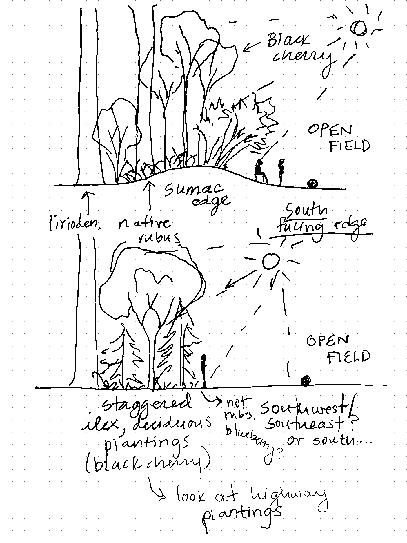 Black
cherry
OPEN
FIELD
sumac
edge
lirioden,
native
rubus
South
facing edge
OPEN
FIELD
staggered
ilex, deciduous
plantings
(black cherry)
not
rubus,
blueberry?
Southwest/
Southeast?
or south....
look at highway
plantings